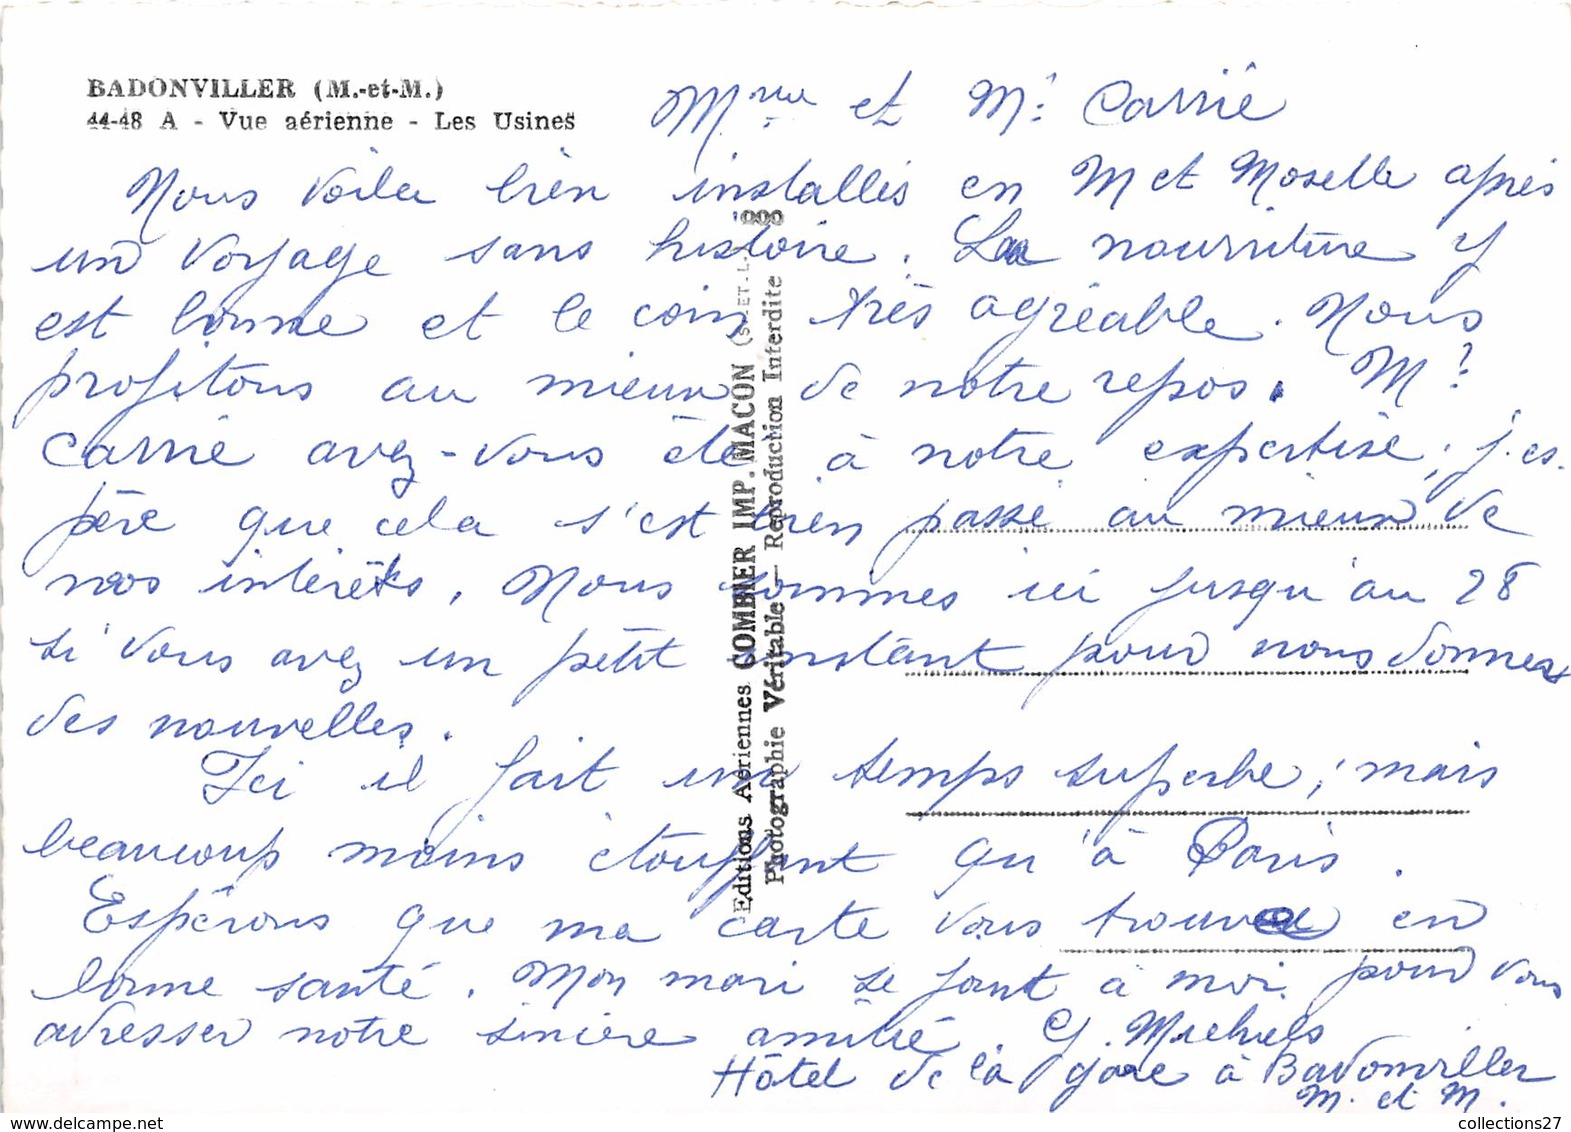 BADONVILLER (M.-et-M.)
44-48 A - Vue aérienne - Les Usines
Mme et Mr Carrié
Nous voila bien installés en M et Moselle après
un voyage sans histoire. La nourriture y
est bonne et le coin très agréable. Nous
profitons au mieux de notre repos. Mr
Carrié avez-vous été à notre expertise, j'es-
père que cela s'est bien passé au mieux de
nos intérêts. Nous sommes ici jusqu'au 28
si vous avez un petit instant pour nous donner
des nouvelles.
Ici il fait un temps superbe, mais
beaucoup moins étouffant qu'à Paris.
Espérons que ma carte vous trouve en
bonne santé. Mon mari se joint à moi pour vous
adresser notre sincère amitié. G. Michiels
Hôtel de la gare à Badonviller
M. et M.
Editions Aériennes COMBIER IMP. MACON (S.-ET-L.)
Photographie Véritable — Reproduction Interdite
collections27